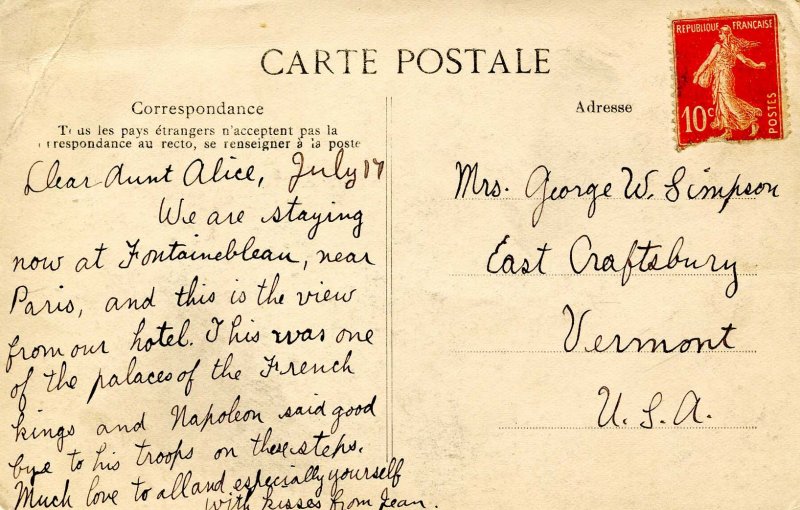 CARTE POSTALE
Correspondance
Tous les pays étrangers n'acceptent pas la
rrespondance au recto, se renseigner à la poste
Dear Aunt Alice, July 17
We are staying
now at Fontainebleau, near
Paris, and this is the view
from our hotel. This was one
of the palaces of the French
kings and Napoleon said good
bye to his troops on these steps.
Much love to all and especially yourself
with kisses from Jean.
Adresse
REPUBLIQUE FRANÇAISE
10c
POSTES
Mrs. George W. Simpson
East Craftsbury
Vermont
U.S.A.